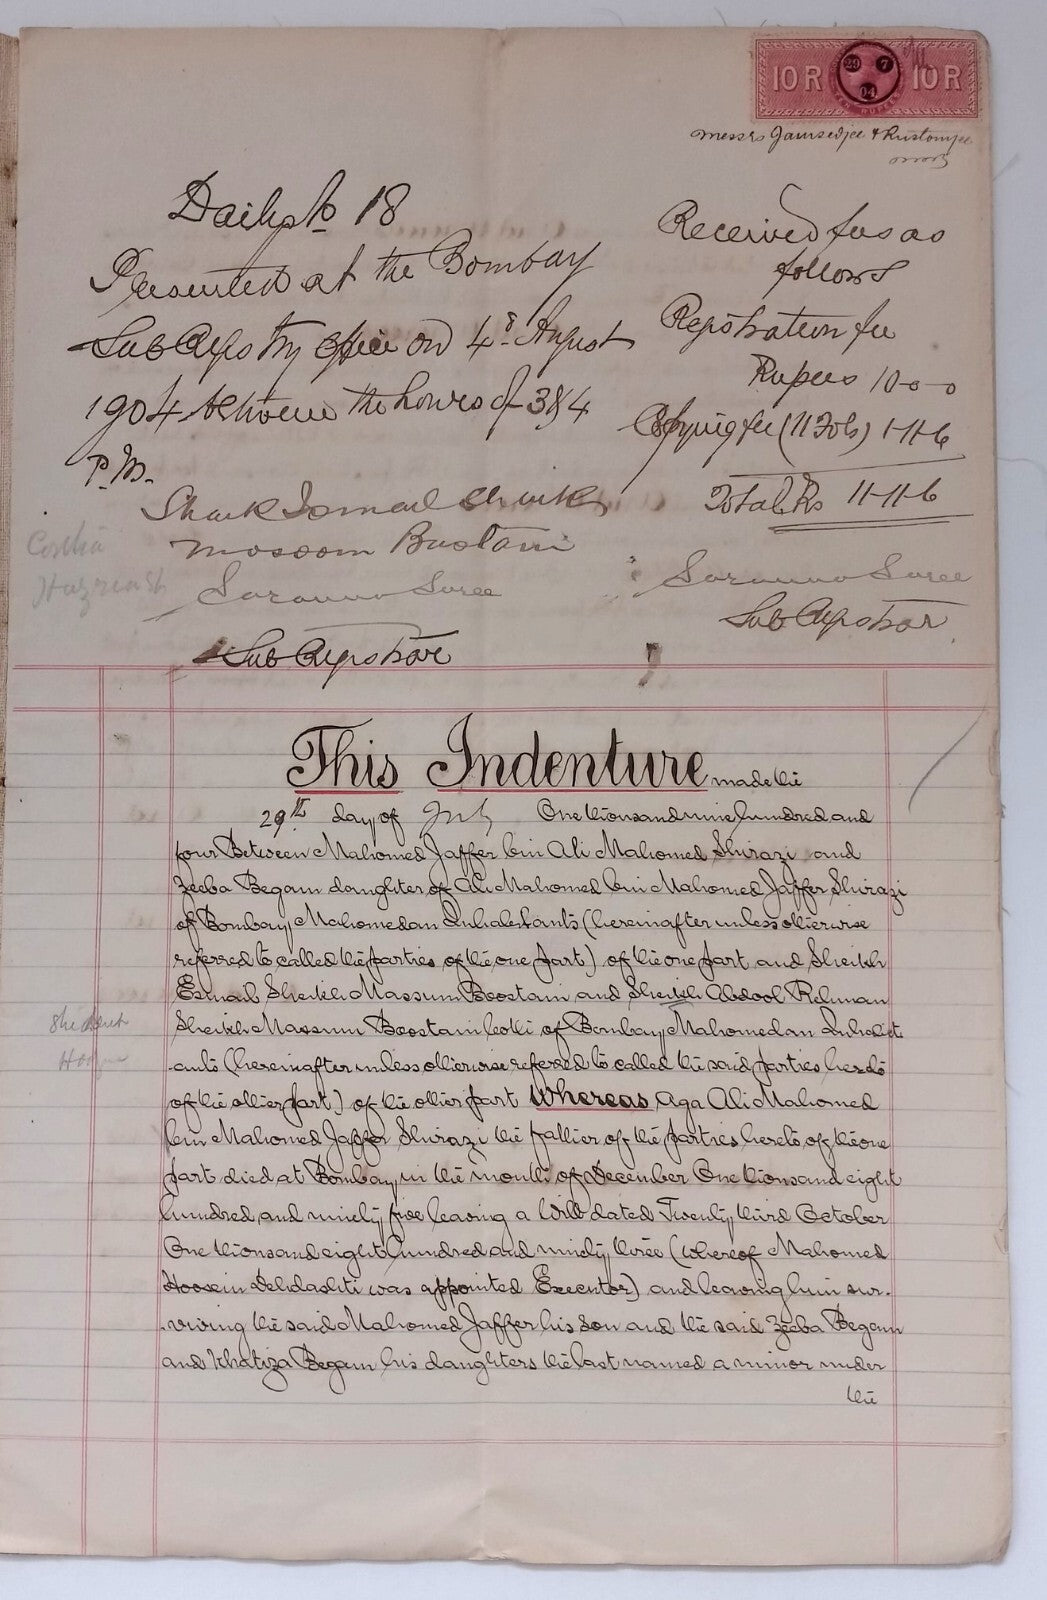 10 R 29 7 04 10 R
Messrs Jamsedjee & Rustomjee
Daily No 18
Presented at the Bombay
Sub Registry Office on 4th August
1904 between the hours of 3 & 4
P.M.
Received fees as
follows
Registration fee
Rupees 10-0-0
Copying fee (11 Fols) 1-11-6
Total Rs 11-11-6
Shaik Ismail Shaik
Mosoom Bustani
Sub Registrar
Sub Registrar
This Indenture made the
29th day of July One thousand nine hundred and
four Between Mahomed Jaffer bin Ali Mahomed Shirazi and
Zeeba Begam daughter of Ali Mahomed bin Mahomed Jaffer Shirazi
of Bombay Mahomedan Inhabitants (hereinafter unless otherwise
referred to called the parties of the one part) of the one part and Sheikh
Esmail Sheikh Massum Boostain and Sheikh Abdool Rehman
Sheikh Massum Boostain both of Bombay Mahomedan Inhabit
ants (hereinafter unless otherwise referred to called the said parties hereto
of the other part) of the other part Whereas Aga Ali Mahomed
bin Mahomed Jaffer Shirazi the father of the parties hereto of the one
part died at Bombay in the month of December One thousand eight
hundred and ninety five leaving a Will dated Twenty third October
One thousand eight hundred and ninety three (whereof Mahomed
Hoosein Dehdashti was appointed Executor) and leaving him sur-
-viving the said Mahomed Jaffer his son and the said Zeeba Begam
and Khatiza Begam his daughters the last named a minor under
the